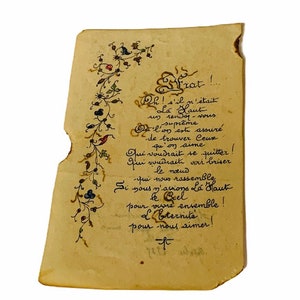 Oh ! s'il n'était
Là Haut
un rendez-vous
suprême
Où l'on est assuré
de trouver Ceux
qu'on aime
Qui voudrait se quitter !
Qui voudrait briser
le nœud
qui nous rassemble
Si nous n'avions Là Haut
le Ciel
pour vivre ensemble !
L'Éternité
pour nous aimer !